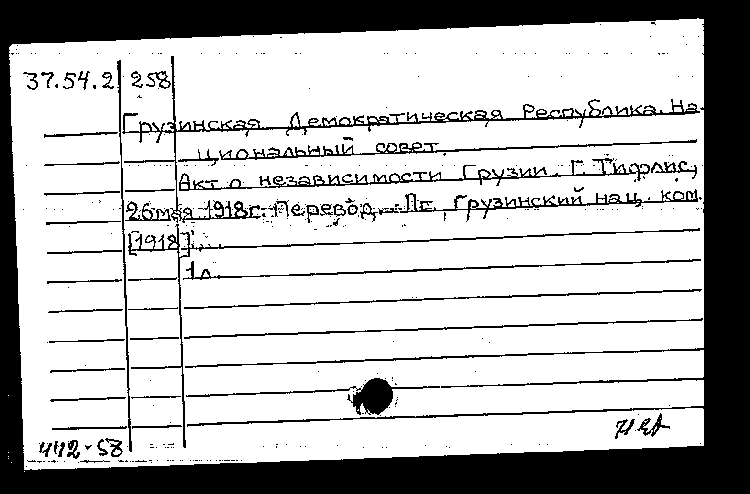 37.54.2 258
Грузинская Демократическая Республика. На-
циональный совет.
Акт о независимости Грузии. Г. Тифлис,
26 мая 1918 г. Перевод. - Пг., Грузинский нац. ком.
[1918].
1 л.
4112-58